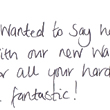 Wanted to say h
with our new wa
or all your hard
fantastic!